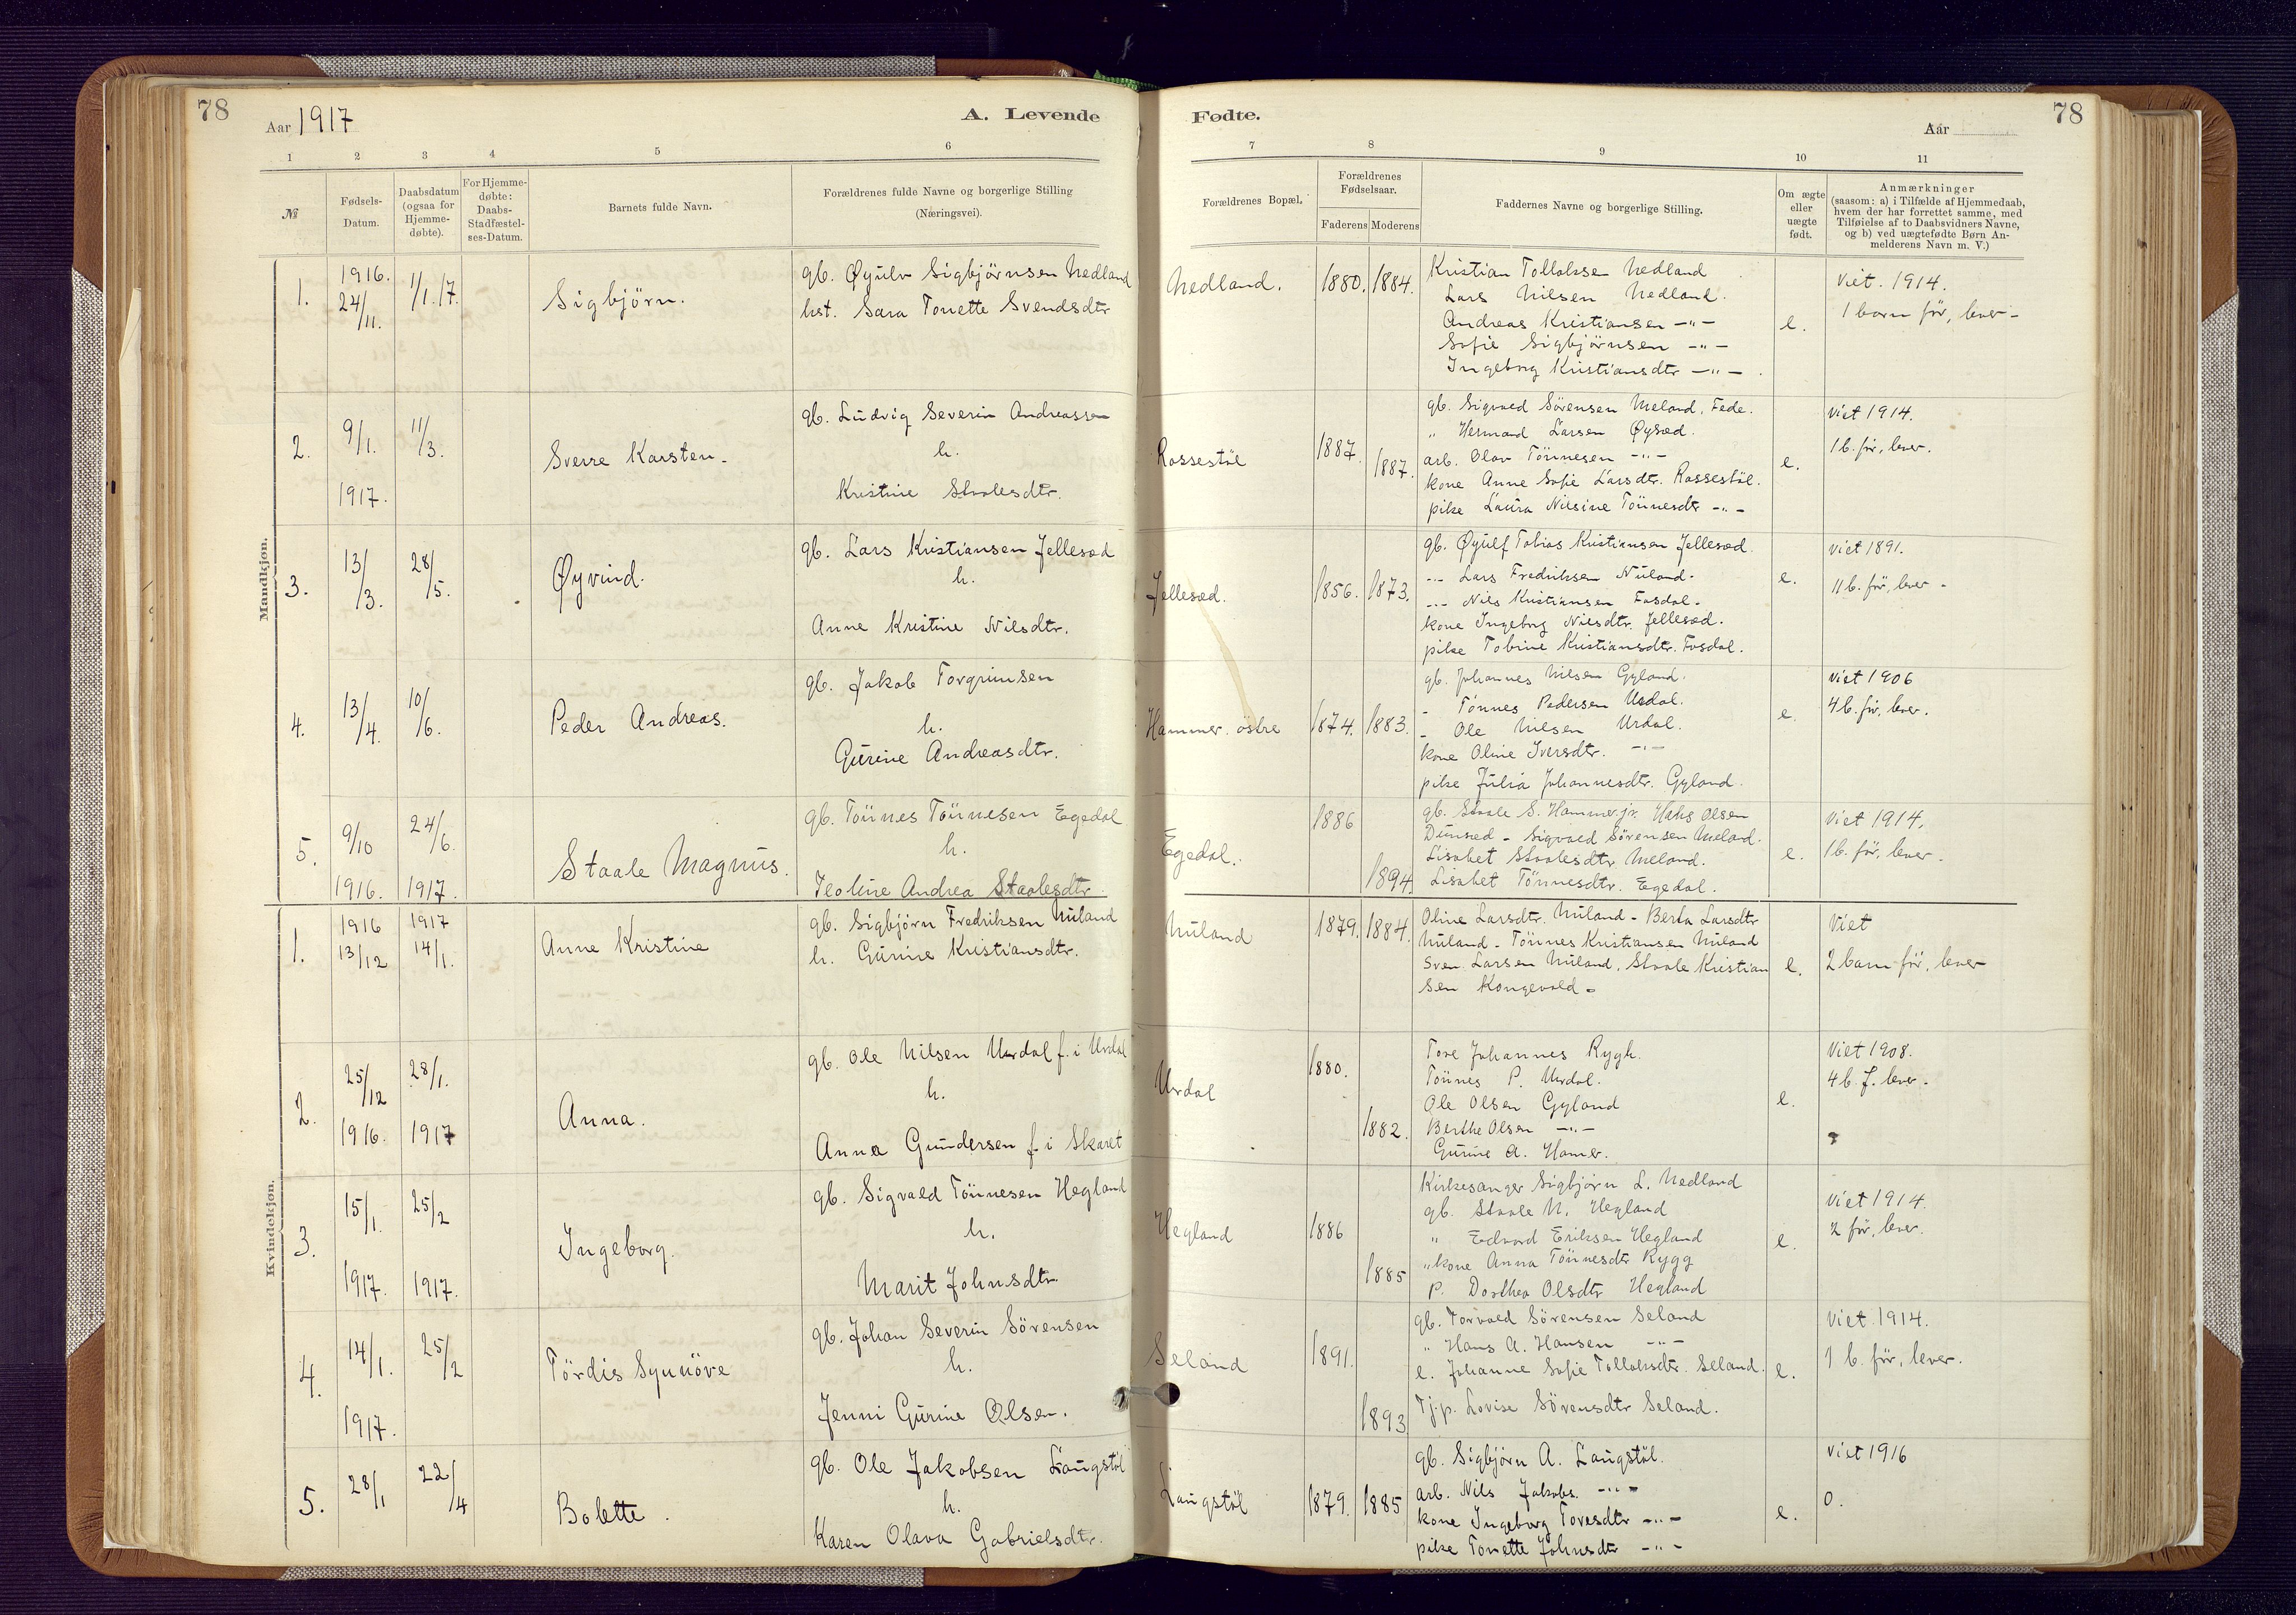 78
Aar 1917
A. Levende
Fødte.
Aar
78
1 2 3 4 5 6 7 8 9 10 11
№
Fødsels-Datum.
Daabsdatum (ogsaa for Hjemme-døbte).
For Hjemme-døbte: Daabs-Stadfæstel-ses-Datum.
Barnets fulde Navn.
Forældrenes fulde Navne og borgerlige Stilling (Næringsvei).
Forældrenes Bopæl.
Forældrenes Fødselsaar.
Faderens Moderens
Faddernes Navne og borgerlige Stilling.
Om ægte eller uægte født.
Anmærkninger
(saasom: a) i Tilfælde af Hjemmedaab, hvem der har forrettet samme, med Tilføielse af to Daabsvidners Navne, og b) ved uægtefødte Børn An-melderens Navn m. V.)
Mandkjøn.
1. 1916. 24/11. 1/1.17. Sigbjörn.
gb. Øyulv Sigbjörnsen Nedland
hst. Sara Tonette Svendsdtr
Nedland. 1880. 1884.
Kristian Tollaksen Nedland
Lars Nilsen Nedland.
Andreas Kristiansen -"-
Sofie Sigbjörnsen -"-
Ingeborg Kristiansdtr -"-
e.
Viet. 1914.
1 barn för, lever -
2. 9/1. 1917. 11/3. Sverre Karsten.
gb. Ludvig Severin Andreassen
h.
Kristine Staalesdtr.
Rossestöl 1887. 1887.
gb. Sigvald Sörensen Meland, Fede.
" Hermand Larsen Øysæd.
arb. Olav Tönnesen -"-
kone Anne Sofie Larsdtr. Rossestöl.
pike Laura Nilsine Tönnesdtr -"-
e.
Viet 1914.
1 b. för, lever.
3. 13/3. 28/5. Øyvind.
gb. Lars Kristiansen Jellesæd
h.
Anne Kristine Nilsdtr.
Jellesæd. 1856. 1873.
gb. Øyulf Tobias Kristiansen Jellesæd.
-"- Lars Fredriksen Nuland.
-"- Nils Kristiansen Fosdal.
kone Ingeborg Nilsdtr. Jellesæd.
pike Tobine Kristiansdtr. Fosdal.
e.
viet 1891.
11 b. för, lever -
4. 13/4. 10/6. Peder Andreas.
gb. Jakob Torgrimsen
h.
Gurine Andreasdtr.
Hammer. östre 1874. 1883.
gb. Johannes Nilsen Gyland.
- Tönnes Pedersen Urdal.
- Ole Nilsen Urdal.
kone Oline Iversdtr. -"-
pike Julia Johannesdtr. Gyland.
e.
Viet 1906
4 b. för, lever.
5. 9/10 1916. 24/6. 1917. Staale Magnus.
gb. Tönnes Tönnesen Egedal
h.
Teoline Andrea Staalesdtr.
Egedal. 1886 1894
gb. Staale S. Hammer jr. Hans Olsen
Dunsæd - Sigvald Sörensen Meland.
Lisabet Staalesdtr Meland.
Lisabet Tönnesdtr. Egedal.
e.
Viet 1914,
1 b. för, lever.
Kvindekjøn.
1. 1916 13/12 1917 14/1. Anne Kristine
gb. Sigbjörn Fredriksen Nuland
h. Gurine Kristiansdtr.
Nuland 1879. 1884.
Oline Larsdtr. Nuland - Berta Larsdtr
Nuland - Tönnes Kristiansen Nuland
Sven Larsen Nuland, Staale Kristian
sen Kongevold -
e.
Viet
2 barn för, lever
2. 25/12 1916. 28/1. 1917 Anna.
gb. Ole Nilsen Urdal f. i Urdal
h.
Anna Gundersen f. i Skaret
Urdal 1880. 1882.
Tore Johannes Rygh.
Tönnes P. Urdal.
Ole Olsen Gyland
Berthe Olsen -"-
Gurine A. Hamer.
e.
Viet 1908.
4 b. f. lever.
3. 15/1. 1917. 25/2 1917. Ingeborg.
gb. Sigvald Tönnesen Hegland
h.
Marit Johnsdtr.
Hegland 1886 1885
Kirkesanger Sigbjörn L. Nedland
gb. Staale N. Hegland
" Edvard Eriksen Hegland
" kone Anna Tönnesdtr Rygg
p. Dorthea Olsdtr Hegland
e.
Viet 1914.
2 för, lever.
4. 14/1. 1917. 25/2 Tördis Synnöve
gb. Johan Severin Sörensen
h.
Jenni Gurine Olsen.
Seland 1891. 1893
gb. Torvald Sörensen Seland
" Hans A. Hansen -"-
e. Johanne Sofie Tollaksdtr. Seland.
Tj.p. Lovise Sörensdtr Seland.
e.
Viet 1914.
1 b. för, lever.
5. 28/1 22/4 Bolette.
gb. Ole Jakobsen Laugstöl
h.
Karen Olava Gabrielsdtr.
Laugstöl 1879. 1885
gb. Sigbjörn A. Laugstöl.
arb. Nils Jakobs. -"-
kone Ingeborg Toresdtr -"-
pike Tonette Johnsdtr -"-
e.
Viet 1916
0.